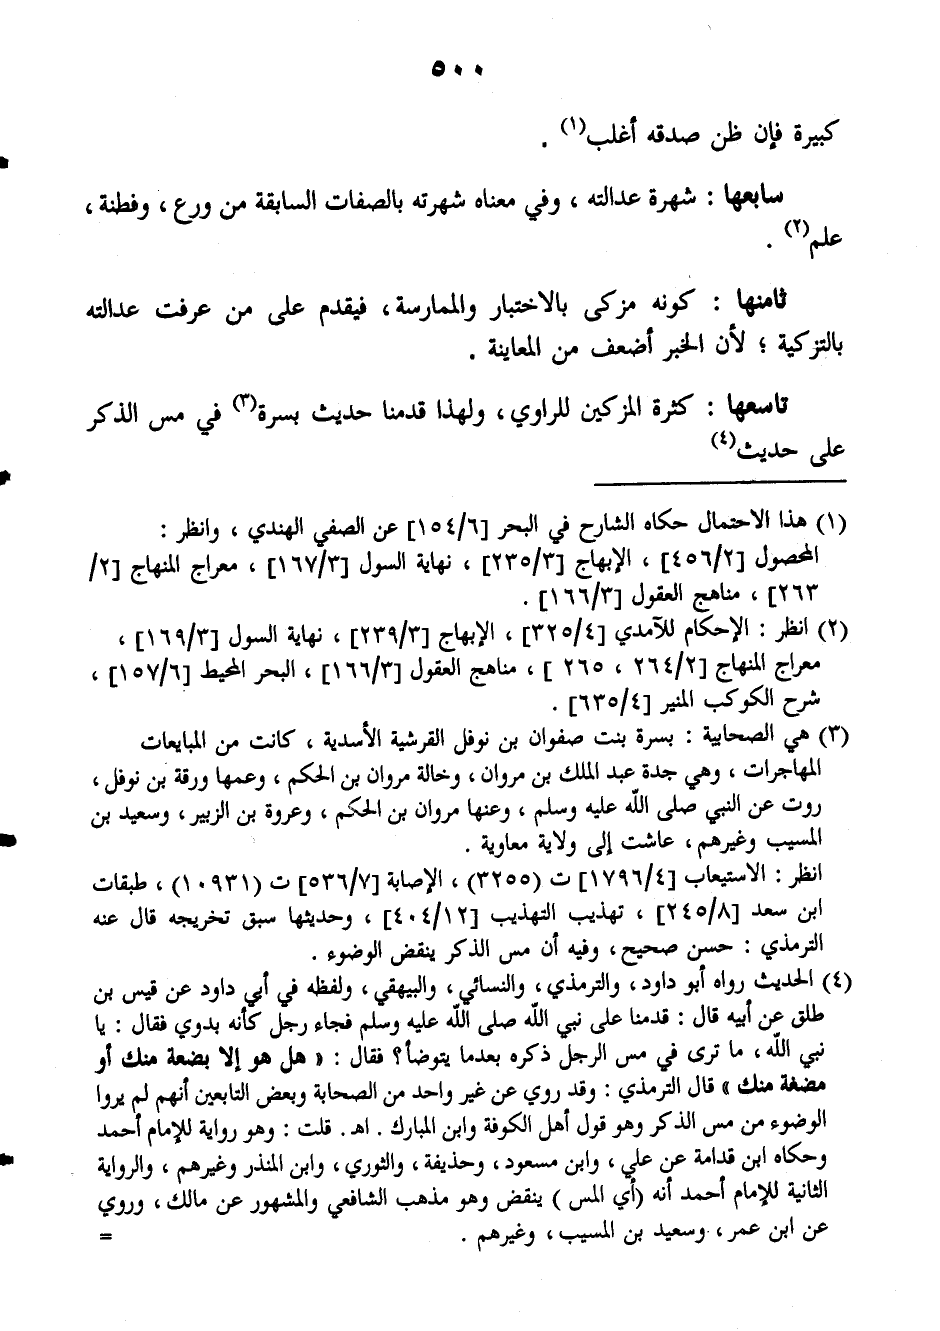 ٥٠٠
كبيرة فإن ظن صدقه أغلب(١) .
سابعها : شهرة عدالته ، وفي معناه شهرته بالصفات السابقة من ورع ، وفطنة ،
علم(٢) .
ثامنها : كونه مزكى بالاختبار والممارسة ، فيقدم على من عرفت عدالته
بالتزكية ؛ لأن الخبر أضعف من المعاينة .
تاسعها : كثرة المزكين للراوي ، ولهذا قدمنا حديث بسرة(٣) في مس الذكر
على حديث(٤)
(١) هذا الاحتمال حكاه الشارح في البحر [١٥٤/٦] عن الصفي الهندي ، وانظر :
المحصول [٤٥٦/٢] ، الإبهاج [٢٣٥/٣] ، نهاية السول [١٦٧/٣] ، معراج المنهاج [٢/
٢٦٣] ، مناهج العقول [١٦٦/٣] .
(٢) انظر : الإحكام للآمدي [٣٢٥/٤] ، الإبهاج [٢٣٩/٣] ، نهاية السول [١٦٩/٣] ،
معراج المنهاج [٢٦٤/٢ ، ٢٦٥ ] ، مناهج العقول [١٦٦/٣] ، البحر المحيط [١٥٧/٦] ،
شرح الكوكب المنير [٦٣٥/٤] .
(٣) هي الصحابية : بسرة بنت صفوان بن نوفل القرشية الأسدية ، كانت من المبايعات
المهاجرات ، وهي جدة عبد الملك بن مروان ، وخالة مروان بن الحكم ، وعمها ورقة بن نوفل ،
روت عن النبي صلى الله عليه وسلم ، وعنها مروان بن الحكم ، وعروة بن الزبير ، وسعيد بن
المسيب وغيرهم ، عاشت إلى ولاية معاوية .
انظر : الاستيعاب [١٧٩٦/٤] ت (٣٢٥٥) ، الإصابة [٥٣٦/٧] ت (١٠٩٣١) ، طبقات
ابن سعد [٢٤٥/٨] ، تهذيب التهذيب [٤٠٤/١٢] ، وحديثها سبق تخريجه قال عنه
الترمذي : حسن صحيح ، وفيه أن مس الذكر ينقض الوضوء .
(٤) الحديث رواه أبو داود ، والترمذي ، والنسائي ، والبيهقي ، ولفظه في أبي داود عن قيس بن
طلق عن أبيه قال : قدمنا على نبي الله صلى الله عليه وسلم فجاء رجل كأنه بدوي فقال : يا
نبي الله ، ما ترى في مس الرجل ذكره بعدما يتوضأ؟ فقال : « هل هو إلا بضعة منك أو
مضغة منك » قال الترمذي : وقد روي عن غير واحد من الصحابة وبعض التابعين أنهم لم يروا
الوضوء من مس الذكر وهو قول أهل الكوفة وابن المبارك . اهـ . قلت : وهو رواية للإمام أحمد
وحكاه ابن قدامة عن علي ، وابن مسعود ، وحذيفة ، والثوري ، وابن المنذر وغيرهم ، والرواية
الثانية للإمام أحمد أنه (أي المس ) ينقض وهو مذهب الشافعي والمشهور عن مالك ، وروي
عن ابن عمر ، وسعيد بن المسيب ، وغيرهم . =